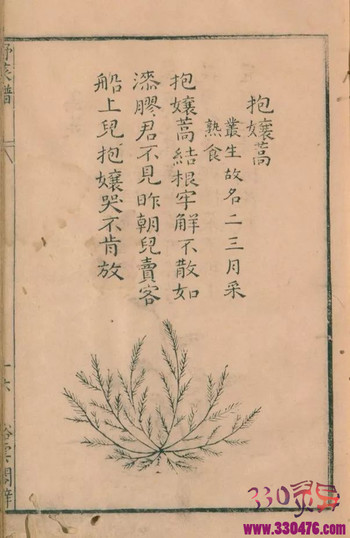 抱孃蒿
叢生故名二三月采
熟食
抱孃蒿結根牢解不散如
漆膠君不見昨朝兒賣客
船上兒抱孃哭不肯放
野菜譜
330
www.330476.com